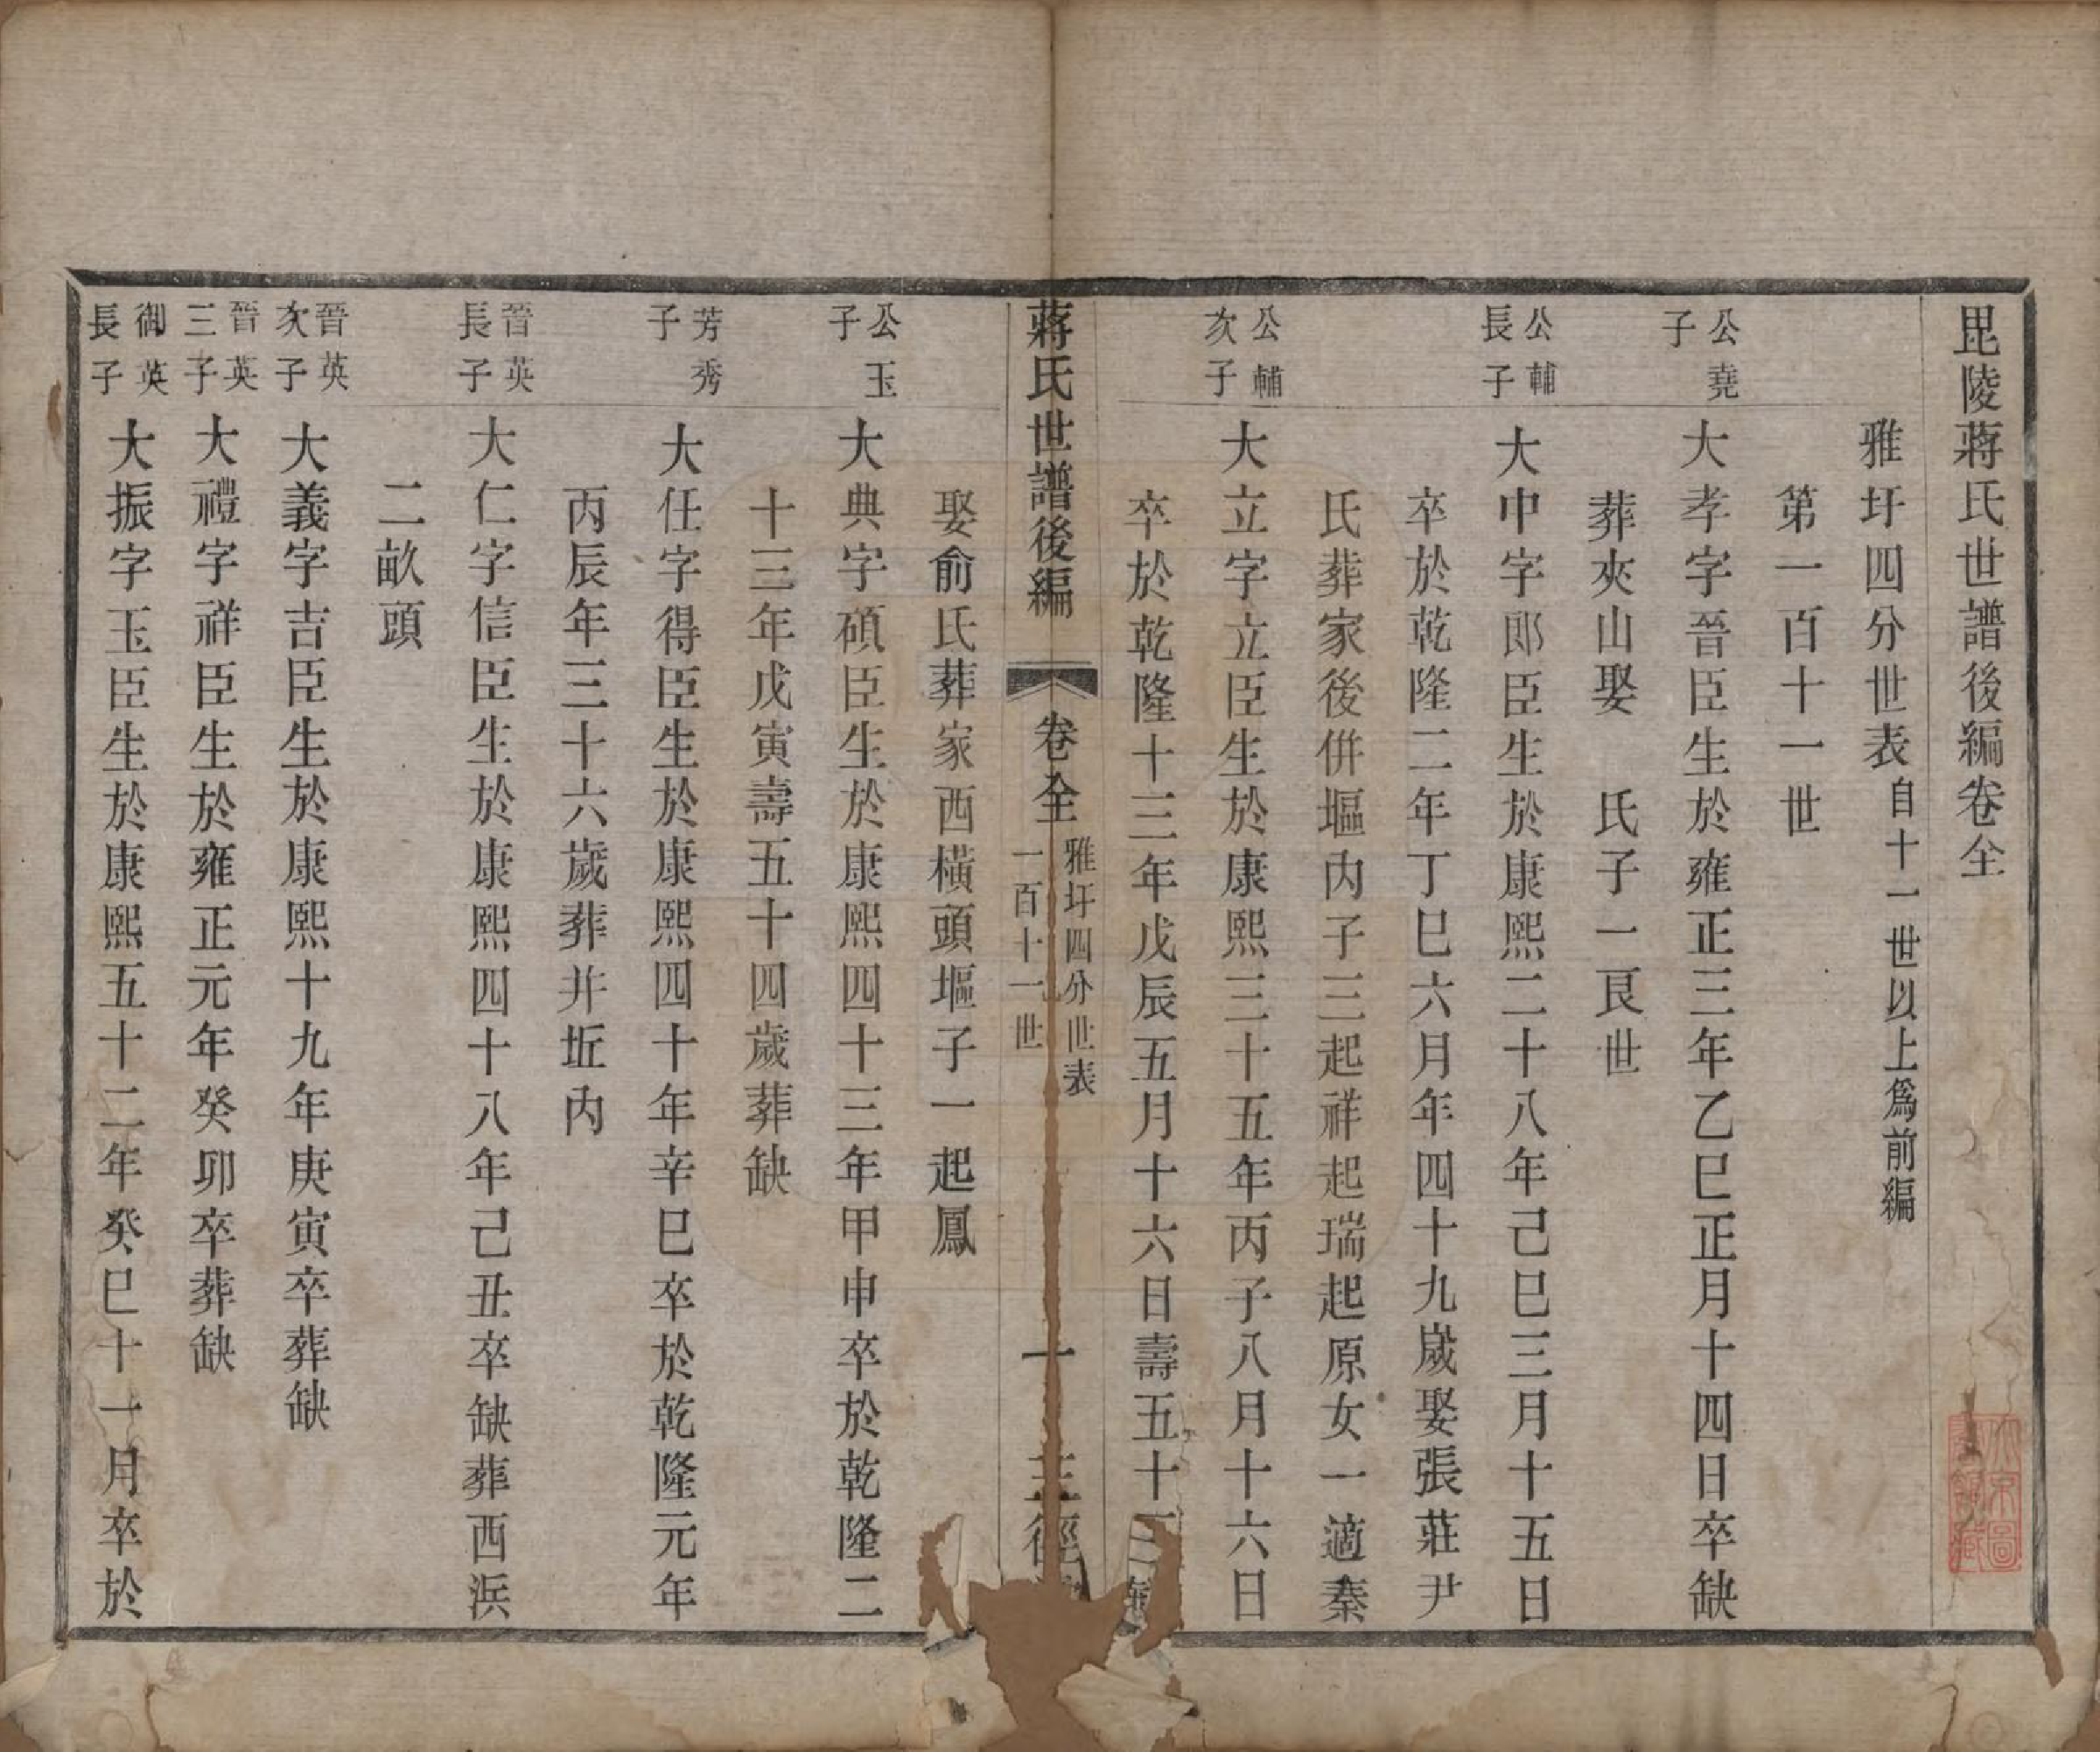 毘陵蔣氏世譜後編卷全
雅圩四分世表自十一世以上爲前編
第一百十一世
公堯子
大孝字晉臣生於雍正三年乙巳正月十四日卒缺
葬夾山娶 氏子一艮世
公輔長子
大中字郎臣生於康熙二十八年己巳三月十五日
卒於乾隆二年丁巳六月年四十九歲娶張莊尹
氏葬家後併塸內子三起祥起瑞起原女一適秦
公輔次子
大立字立臣生於康熙三十五年丙子八月十六日
卒於乾隆十三年戊辰五月十六日壽五十三
蔣氏世譜後編 卷全 雅圩四分世表 一百十一世 一 三徑
娶俞氏葬家西橫頭塸子一起鳳
公玉子
大典字碩臣生於康熙四十三年甲申卒於乾隆二
十三年戊寅壽五十四歲葬缺
芳秀子
大任字得臣生於康熙四十年辛巳卒於乾隆元年
丙辰年三十六歲葬井坵內
晉英長子
大仁字信臣生於康熙四十八年己丑卒缺葬西浜
二畝頭
晉英次子
大義字吉臣生於康熙十九年庚寅卒葬缺
晉英三子
大禮字祥臣生於雍正元年癸卯卒葬缺
御英長子
大振字玉臣生於康熙五十二年癸巳十一月卒於